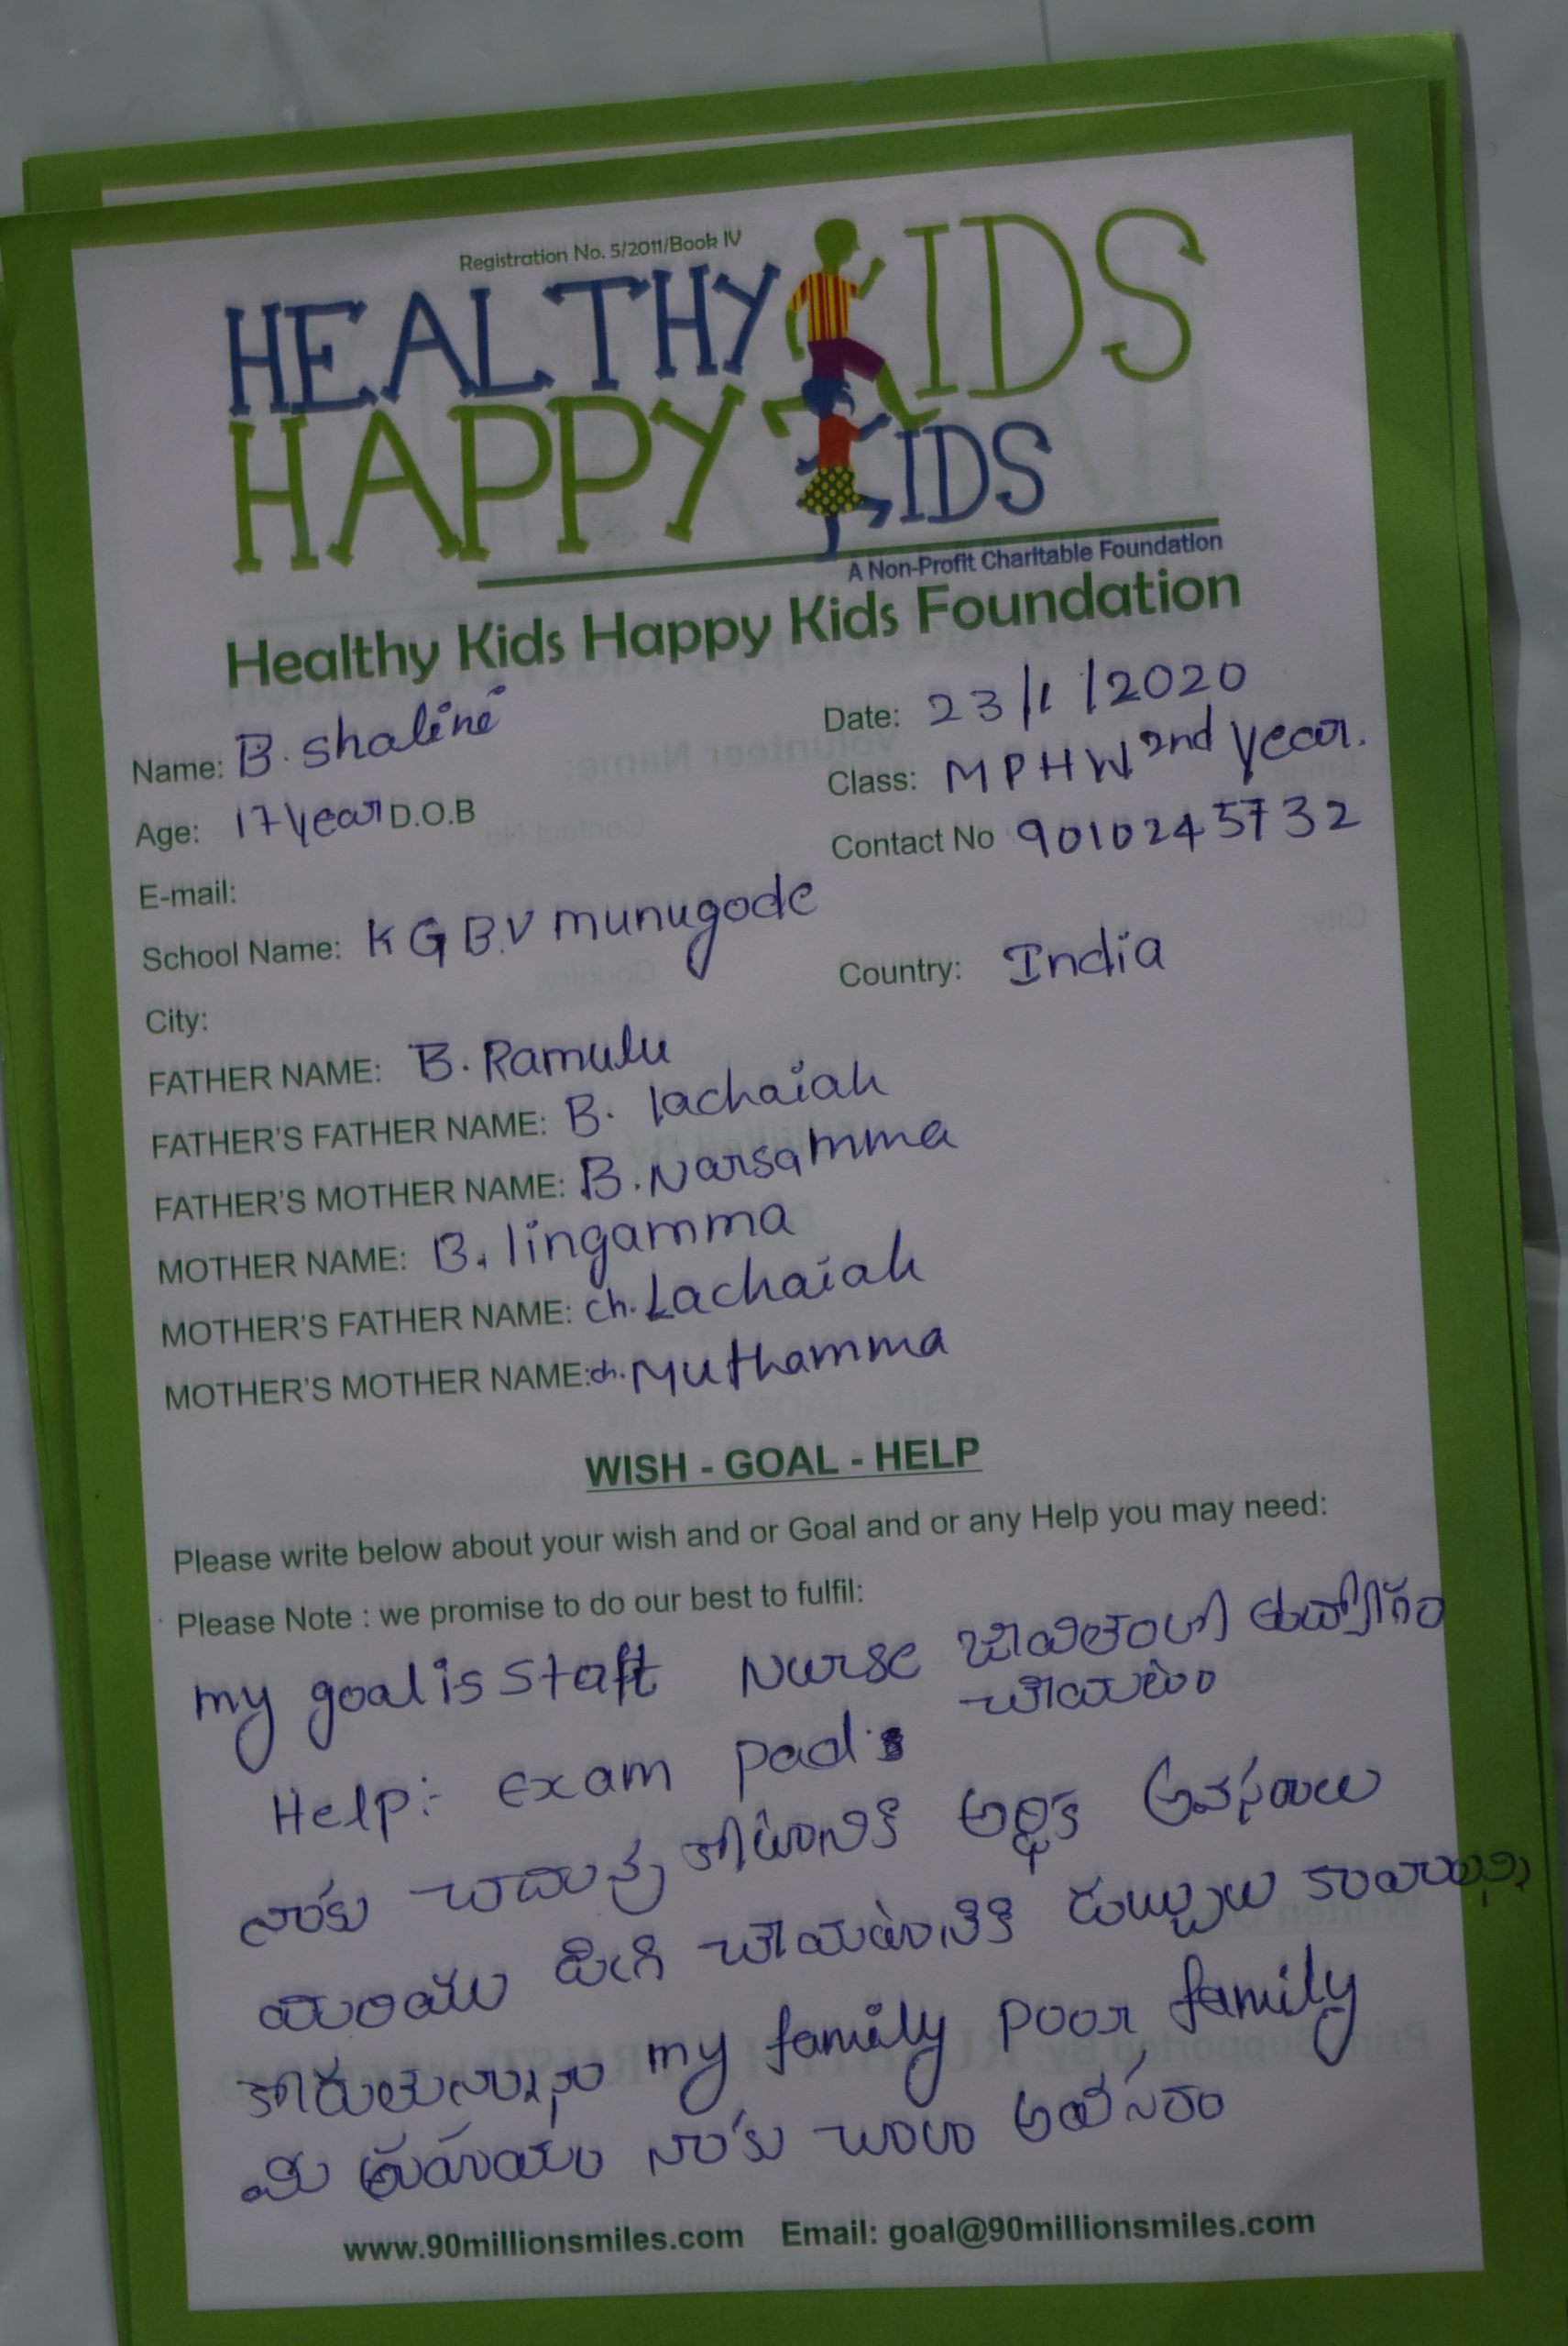 Registration No. 5/2011/Book IV
HEALTHY KIDS
HAPPY KIDS
A Non-Profit Charitable Foundation
Healthy Kids Happy Kids Foundation
Name: B. Shalini
Date: 23/1/2020
Age: 17 year D.O.B
Class: MPHW 2nd year.
Contact No 9010245732
E-mail:
School Name: KGB.V munugode
Country: India
City:
FATHER NAME: B. Ramulu
FATHER'S FATHER NAME: B. lachaiah
FATHER'S MOTHER NAME: B. Narsamma
MOTHER NAME: B. lingamma
MOTHER'S FATHER NAME: ch. Lachaiah
MOTHER'S MOTHER NAME: ch. Muthamma
WISH - GOAL - HELP
Please write below about your wish and or Goal and or any Help you may need:
Please Note : we promise to do our best to fulfil:
my goal is Staff Nurse ఉద్యోగం
చేయటం
Help:- Exam pad's
నాకు చదువు కోటానికి ఆర్థిక అవసరాలు
మరియు చేయటానికి డబ్బులు
కోరుతున్నాను my family poor family
మీ సహాయం నాకు చాలా అవసరం
www.90millionsmiles.com Email: goal@90millionsmiles.com